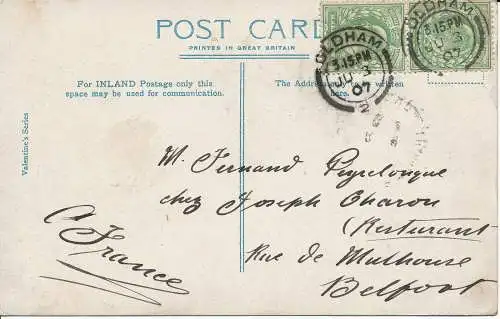 POST CARD
PRINTED IN GREAT BRITAIN
For INLAND Postage only this
space may be used for communication.
The Address only written
here.
Valentine's Series
OLDHAM
3.15 PM
JU 3
07
OLDHAM
3.15 PM
JU 3
07
M. Fernand Peyrelongue
chez Joseph Charon
(Resturant
Rue de Mulhouse
Belfort
France